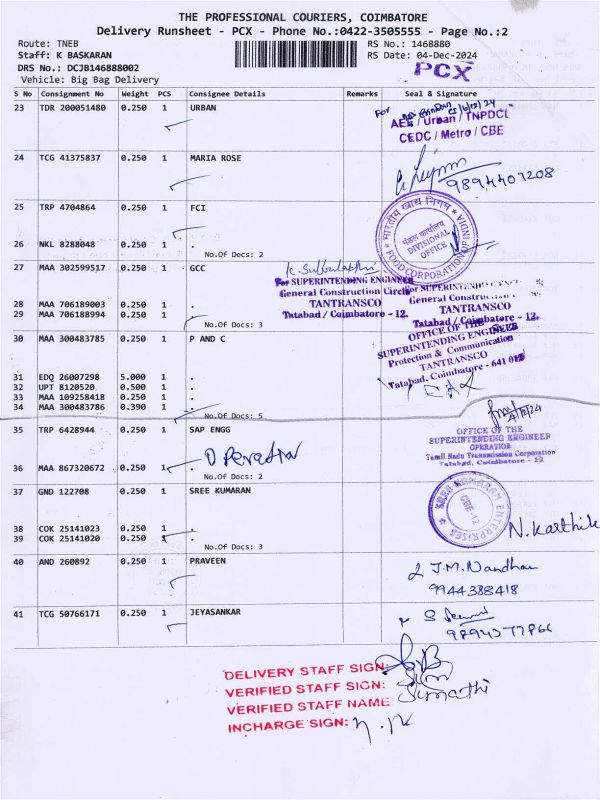 THE PROFESSIONAL COURIERS, COIMBATORE
Delivery Runsheet - PCX - Phone No.:0422-3505555 - Page No.:2
Route: TNEB
RS No.: 1468880
Staff: K BASKARAN
RS Date: 04-Dec-2024
DRS No.: DCJB146888002
PCX
Vehicle: Big Bag Delivery
S No Consignment No Weight PCS Consignee Details Remarks Seal & Signature
23 TDR 200051480 0.250 1 URBAN
For
AEE / Urban / TNPDCL
CEDC / Metro / CBE
24 TCG 41375837 0.250 1 MARIA ROSE
9894407208
25 TRP 4704864 0.250 1 FCI
भारतीय खाद्य निगम
मंडल कार्यालय
DIVISIONAL
OFFICE
FOOD CORPORATION OF INDIA
26 NKL 8288048 0.250 1 .
No.Of Docs: 2
27 MAA 302599517 0.250 1 GCC
For SUPERINTENDING ENGINEER
General Construction Circle
TANTRANSCO
Tatabad / Coimbatore - 12.
For SUPERINTENDING
General
TANTRANSCO
Tatabad / Coimbatore - 12.
28 MAA 706189003 0.250 1 .
29 MAA 706188994 0.250 1 .
No.Of Docs: 3
30 MAA 300483785 0.250 1 P AND C
OFFICE OF THE
SUPERINTENDING ENGINEER
Protection & Communication
TANTRANSCO
Tatabad, Coimbatore - 641 012
31 EDQ 26007298 5.000 1 .
32 UPT 8120520 0.500 1 .
33 MAA 109258418 0.250 1 .
34 MAA 300483786 0.390 1 .
No.Of Docs: 5
35 TRP 6428944 0.250 1 SAP ENGG
4/12/24
OFFICE OF THE
SUPERINTENDING ENGINEER
OPERATION
Tamil Nadu Transmission Corporation
Tatabad, Coimbatore - 12
36 MAA 867320672 0.250 1 .
No.Of Docs: 2
37 GND 122708 0.250 1 SREE KUMARAN
CBE-12
ENTERPRISES
N. Karthik
38 COK 25141023 0.250 1 .
39 COK 25141020 0.250 1 .
No.Of Docs: 3
40 AND 260892 0.250 1 PRAVEEN
J.M. Nandhan
9944388418
41 TCG 50766171 0.250 1 JEYASANKAR
DELIVERY STAFF SIGN:
VERIFIED STAFF SIGN:
VERIFIED STAFF NAME: Sumathi
INCHARGE SIGN: